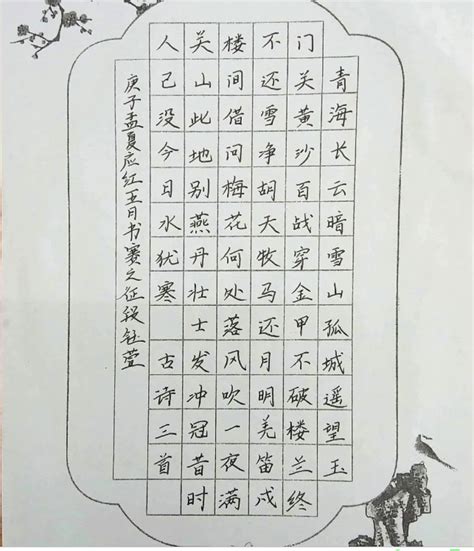 青海长云暗雪山孤城遥望玉
门关黄沙百战穿金甲不破楼兰终
不还雪净胡天牧马还月明羌笛戍
楼间借问梅花何处落风吹一夜满
关山此地别燕丹壮士发冲冠昔时
人已没今日水犹寒 古诗三首
庚子孟夏应红五月书赛之征段钰莹